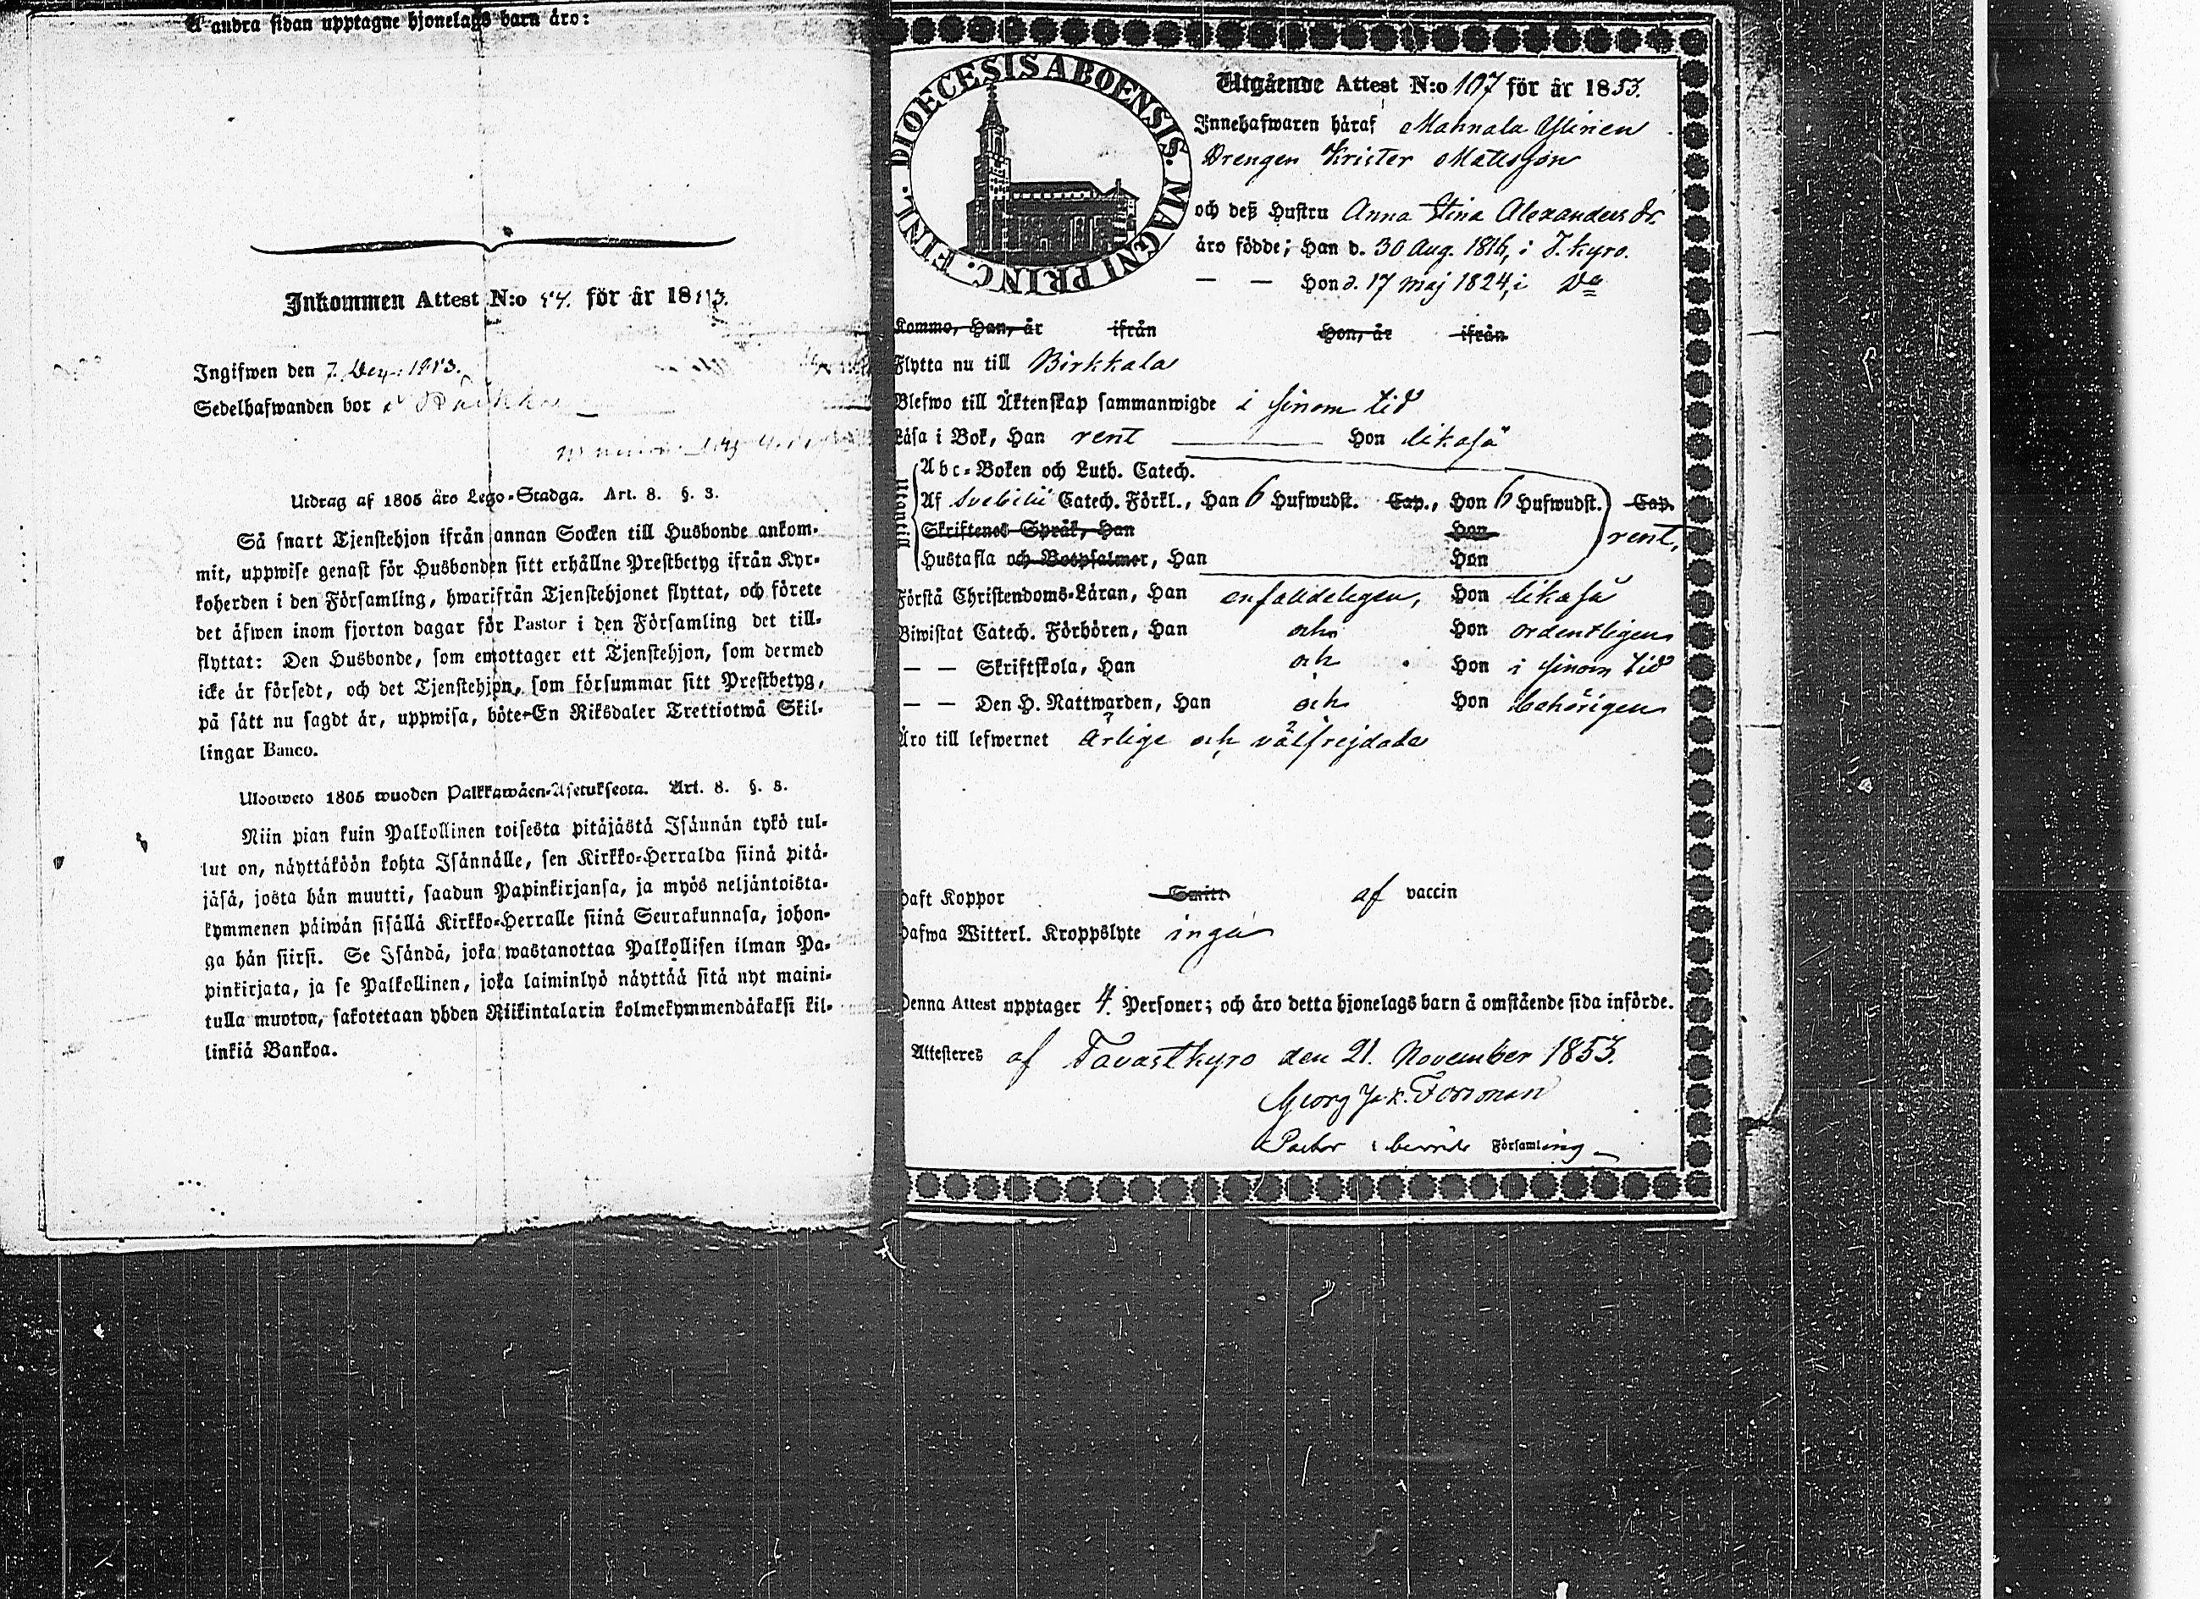 å andra sidan upptagne hjonelags barn äro:
Inkommen Attest N:o 54. för år 1853.
Ingifwen den 7. Dec. 1853.
Sedelhafwanden bor i
Utdrag af 1805 års Lego-Stadga. Art. 8. §. 3.
Så snart Tjenstehjon ifrån annan Socken till Husbonde ankom-
mit, uppwise genast för Husbonden sitt erhållne Prestbetyg ifrån Kyr-
koherden i den Församling, hwarifrån Tjenstehjonet flyttat, och förete
det äfwen inom fjorton dagar för Pastor i den Församling det till-
flyttat: Den Husbonde, som emottager ett Tjenstehjon, som dermed
icke är försedt, och det Tjenstehjon, som försummar sitt Prestbetyg,
på sätt nu sagdt är, uppwisa, böte En Riksdaler Trettiotwå Skil-
lingar Banco.
Ulosweto 1805 wuoden Palkkawäen-Asetuksesta. Art. 8. §. 3.
Niin pian kuin Palkollinen toisesta pitäjästä Isännän tykö tul-
lut on, näyttäköön kohta Isännälle, sen Kirkko-Herralda siinä pitä-
jäsä, josta hän muutti, saadun Papinkirjansa, ja myös neljäntoista-
kymmenen päiwän sisällä Kirkko-Herralle siinä Seurakunnasa, johon-
ga hän siirsi. Se Isändä, joka wastanottaa Palkollisen ilman Pa-
pinkirjata, ja se Palkollinen, joka laiminlyö näyttää sitä nyt maini-
tulla muoton, sakotetaan yhden Riikintalarin kolmekymmendäkaksi kil-
linkiä Bankoa.
DIOECESIS ABOENSIS. MAGNI PRINC. FINL.
Utgående Attest N:o 107 för år 1853.
Innehafwaren häraf Mahnala Ylinen
Drengen Krister Mattsson
och deß Hustru Anna Stina Alexandersdr
äro födde; Han d. 30 Aug. 1816, i T.kyro.
— — Hon d. 17 maj 1824, i Do
Kommo, Han, år ifrån Hon, år ifrån
Flytta nu till Birkkala
Blefwo till Äktenskap sammanwigde i sinom tid
Läsa i Bok, Han rent Hon likaså
Utantill
Abc-Boken och Luth. Catech.
Af Svebilii Catech. Förkl., Han 6 Hufwudst. Cap., Hon 6 Hufwudst. Cap.
Skriftenes Språk, Han Hon rent,
Hustafla och Botpsalmer, Han Hon
Förstå Christendoms-Läran, Han enfaldeligen, Hon likaså
Biwistat Catech. Förhören, Han och Hon ordentligen
— — Skriftskola, Han och Hon i sinom tid
— — Den H. Nattwarden, Han och Hon behörigen
Äro till lefwernet ärlige och välfrejdade
Haft Koppor Smitt af vaccin
Hafwa Witterl. Kroppslyte inga
Denna Attest upptager 4. Personer; och äro detta hjonelags barn å omstående sida införde.
Attesteres af Tavastkyro den 21. November 1853.
Georg Jak. Forsman
Pastor i berörde Församling